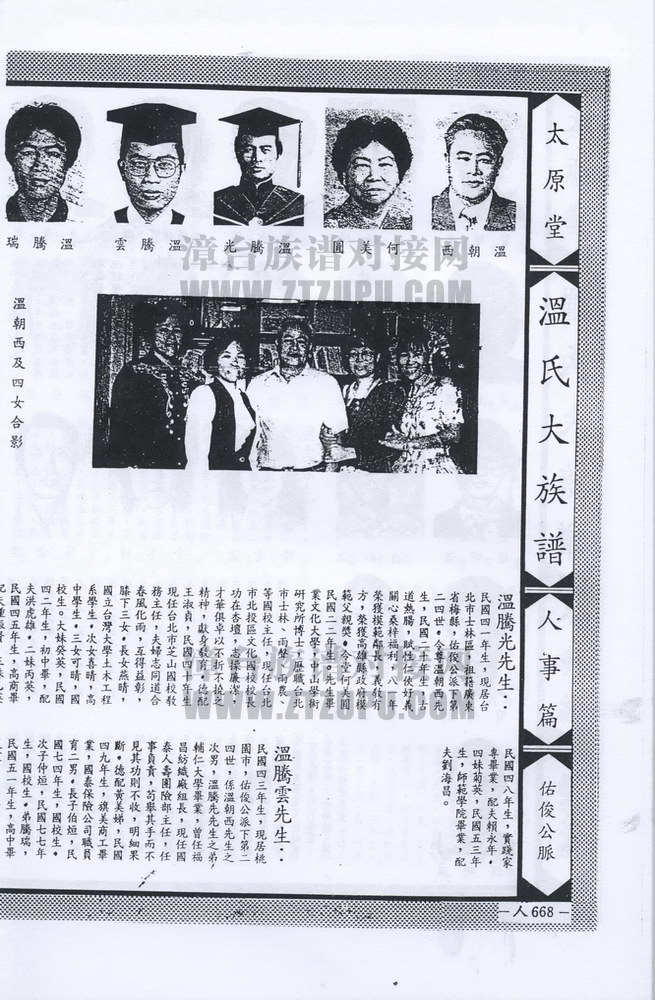 太原堂
溫氏大族譜
人事篇
佑俊公脈
—人668—
溫朝西
何美圓
溫騰光
溫騰雲
溫騰瑞
漳台族谱对接网
WWW.ZTZUPU.COM
溫朝西及四女合影
溫騰光先生：
民國四一年生，現居台
北市士林區，祖籍廣東
省梅縣，佑俊公派下第
二四世。令尊溫朝西先
生，民國二十年生，古
道熱腸，賦性仁俠好義
關心桑梓福利，八一年
榮獲模範鄰長，義教有
方，榮獲高雄縣政府模
範父親獎。令堂何美圓
民國二二年生。先生畢
業文化大學，中山學術
研究所博士，歷職台北
市士林、雨聲、雨農
等國校主任，現任台北
市北投區文化國校校長
功在杏壇，志操廉潔
才華俱卓以不折不撓之
精神，獻身教育。德配
王淑貞，民國四十年生
現任台北市芝山國校教
務主任，夫婦志同道合
春風化雨，互得益彰，
膝下三女。長女燕晴，
國立台灣大學土木工程
系學生。次女喜晴，高
中學生。三女可晴，國
校生。大妹癸英，民國
四二年生，初中畢，配
夫洪虎雄。二妹丙英，
民國四五年生，高商畢
民國四八年生，實踐家
專畢業，配夫賴永年。
四妹菊英，民國五三年
生，師範學院畢業，配
夫劉海昌。
溫騰雲先生：
民國四三年生，現居桃
園市，佑俊公派下第二
四世，係溫朝西先生之
次男，溫騰光先生之弟，
輔仁大學畢業，曾任福
昌紡織廠組長，現任國
泰人壽團險部主任，任
事負責，苟舉其手而不
見其功則不收，明細果
斷。德配黃美娣，民國
四九年生，旗美商工畢
業，國泰保險公司職員
育二男。長子伯烜，民
國七四年生，國校生。
次子仲烜，民國七七年
生，國校生。弟騰瑞，
民國五一年生，高中畢